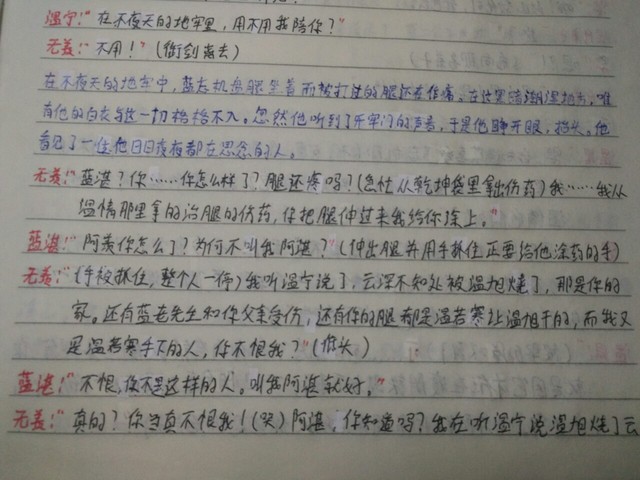 温宁:"在不夜天的地牢里,用不用我陪你?"
无羡:"不用!"(御剑离去)
在不夜天的地牢中,蓝忘机盘腿坐着而被打过的腿还在作痛。在这黑暗潮湿地方,唯
有他的白衣与这一切格格不入。忽然他听到了开牢门的声音,于是他睁开眼,抬头。他
看见了一位他日日夜夜都在思念的人。
无羡:"蓝湛?你……你怎么样了?腿还疼吗?(急忙从乾坤袋里拿出伤药)我……我从
温情那里拿的治腿的伤药,你把腿伸过来我给你涂上。"
蓝湛:"阿羡你怎么了?为何不叫我阿湛?"(伸出腿并用手抓住正要给他涂药的手)
无羡:"(手被抓住,整个人一停)我听温宁说了,云深不知处被温旭烧了,那是你的
家。还有蓝老先生和你父亲受伤,还有你的腿都是温若寒让温旭干的,而我又
是温若寒手下的人,你不恨我?"(低头)
蓝湛:"不恨,你不是这样的人。叫我阿湛就好。"
无羡:"真的?你当真不恨我!(哭)阿湛,你知道吗?我在听温宁说温旭烧了云